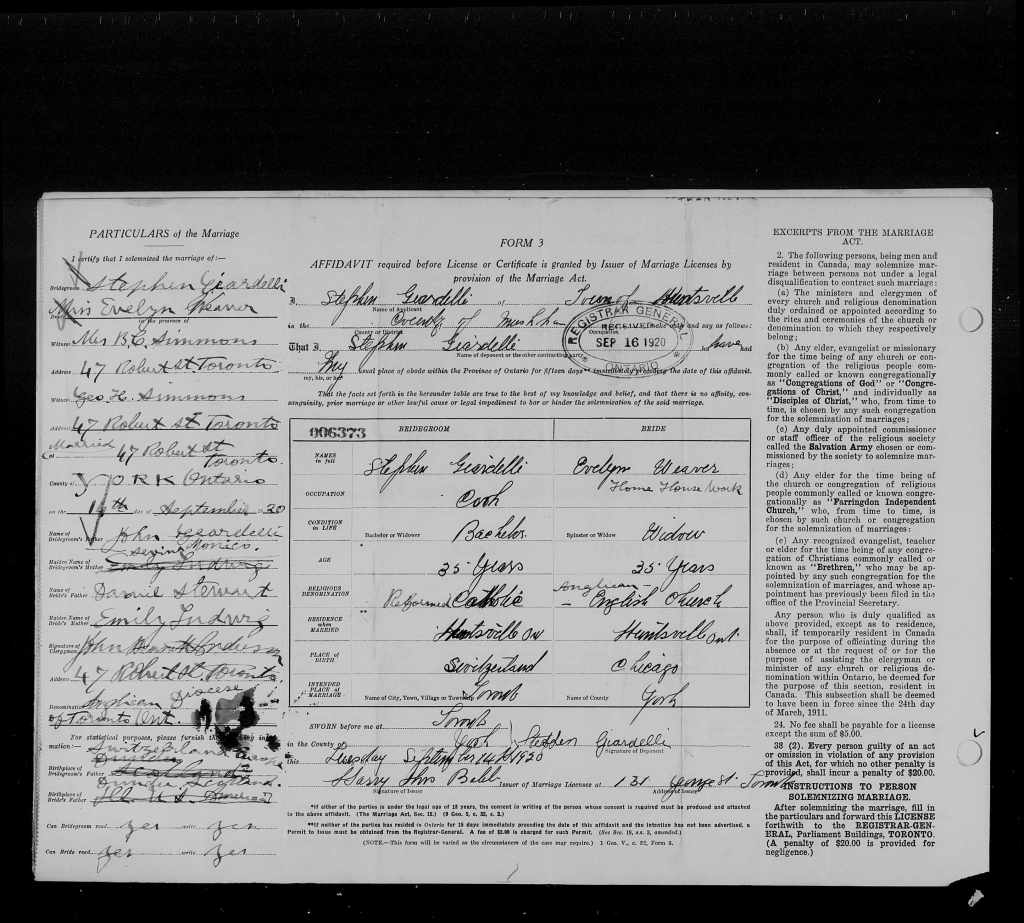 PARTICULARS of the Marriage
I certify that I solemnized the marriage of:—
Bridegroom Stephen Giardelli
Miss Evelyn Weaver
in the presence of
Witness Mrs B. C. Simmons
Address 47 Robert St Toronto
Witness Geo. H. Simmons
Address 47 Robert St Toronto
Married
at 47 Robert St
Toronto.
County of YORK Ontario
on the 14th day of September 1920
Name of Bridegroom's Father John Geardelli
Monico.
Maiden Name of Bridegroom's Mother Emily Ludwig
Name of Bride's Father Daniel Stewart
Maiden Name of Bride's Mother Emily Ludwig
Signature of Clergyman John
Address 47 Robert St. Toronto.
Diocese
Denomination Anglican
of Toronto Ont.
For statistical purposes, please furnish the following information:—
Switzerland
Birthplace of Bridegroom's Father
Dundee Scotland.
Birthplace of Bride's Father
Can Bridegroom read yes write yes
Can Bride read yes write yes
FORM 3
AFFIDAVIT required before License or Certificate is granted by Issuer of Marriage Licenses by
provision of the Marriage Act.
I, Stephen Geardelli of Town of Huntsville
Name of Applicant
in the County of Muskka make oath and say as follows:
County or District
Occupation
REGISTRAR GENERAL
RECEIVED
SEP 16 1920
ONTARIO
That I, Stephen Geardelli have had
Name of deponent or the other contracting party
My usual place of abode within the Province of Ontario for fifteen days** immediately preceding the date of this affidavit.
my, his, or her
That the facts set forth in the hereunder table are true to the best of my knowledge and belief, and that there is no affinity, consanguinity, prior marriage or other lawful cause or legal impediment to bar or hinder the solemnization of the said marriage.
006373 BRIDEGROOM BRIDE
NAMES in full Stephen Geardelli Evelyn Weaver
Home House Work
OCCUPATION Cook
CONDITION in LIFE Bachelor or Widower Bachelor. Spinster or Widow Widow
AGE 35 Years 35 Years
Anglican —
RELIGIOUS DENOMINATION Reformed Catholic — English Church
RESIDENCE WHEN MARRIED Huntsville On Huntsvill Ont.
PLACE OF BIRTH Switzerland Chicago
INTENDED PLACE of MARRIAGE Name of City, Town, Village or Township Toronto Name of County York
SWORN before me at Toronto
in the County of York Stedden Geardelli
Signature of Deponent
this Tuesday September 14th 1920
Harry Jhn Bebb Issuer of Marriage Licenses at 131 George St. Toronto
Signature of Issuer Address of Issuer
*If either of the parties is under the legal age of 18 years, the consent in writing of the person whose consent is required must be produced and attached
to the above affidavit. (The Marriage Act, Sec. 15.) (9 Geo. 5, c. 35, s. 2.)
**If neither of the parties has resided in Ontario for 15 days immediately preceding the date of this affidavit and the intention has not been advertised, a
Permit to Issue must be obtained from the Registrar-General. A fee of $2.00 is charged for such Permit. (See Sec. 19, s.s. 3, amended.)
(NOTE.—This form will be varied as the circumstances of the case may require.) 1 Geo. V., c. 32, Form 3.
EXCERPTS FROM THE MARRIAGE
ACT.
2. The following persons, being men and
resident in Canada, may solemnize marriage
between persons not under a legal
disqualification to contract such marriage:
(a) The ministers and clergymen of
every church and religious denomination
duly ordained or appointed according to
the rites and ceremonies of the church or
denomination to which they respectively
belong;
(b) Any elder, evangelist or missionary
for the time being of any church or congregation
of the religious people commonly
called or known congregationally
as "Congregations of God" or "Congregations
of Christ," and individually as
"Disciples of Christ," who, from time to
time, is chosen by any such congregation
for the solemnization of marriages;
(c) Any duly appointed commissioner
or staff officer of the religious society
called the Salvation Army chosen or commissioned
by the society to solemnize marriages;
(d) Any elder for the time being of
the church or congregation of religious
people commonly called or known congregationally
as "Farringdon Independent
Church," who, from time to time, is
chosen by such church or congregation
for the solemnization of marriages;
(e) Any recognized evangelist, teacher
or elder for the time being of any congregation
of Christians commonly called or
known as "Brethren," who may be appointed
by any such congregation for the
solemnization of marriages, and whose appointment
has previously been filed in the
office of the Provincial Secretary.
Any person who is duly qualified as
above provided, except as to residence,
shall, if temporarily resident in Canada
for the purpose of officiating during the
absence or at the request of or for the
purpose of assisting the clergyman or
minister of any church or religious denomination
within Ontario, be deemed for
the purpose of this section, resident in
Canada. This subsection shall be deemed
to have been in force since the 24th day
of March, 1911.
24. No fee shall be payable for a license
except the sum of $5.00.
38 (2). Every person guilty of an act
or omission in violation of any provision
of this Act, for which no other penalty is
provided, shall incur a penalty of $20.00.
INSTRUCTIONS TO PERSON
SOLEMNIZING MARRIAGE.
After solemnizing the marriage, fill in
the particulars and forward this LICENSE
forthwith to the REGISTRAR-GENERAL,
Parliament Buildings, TORONTO.
(A penalty of $20.00 is provided for
negligence.)